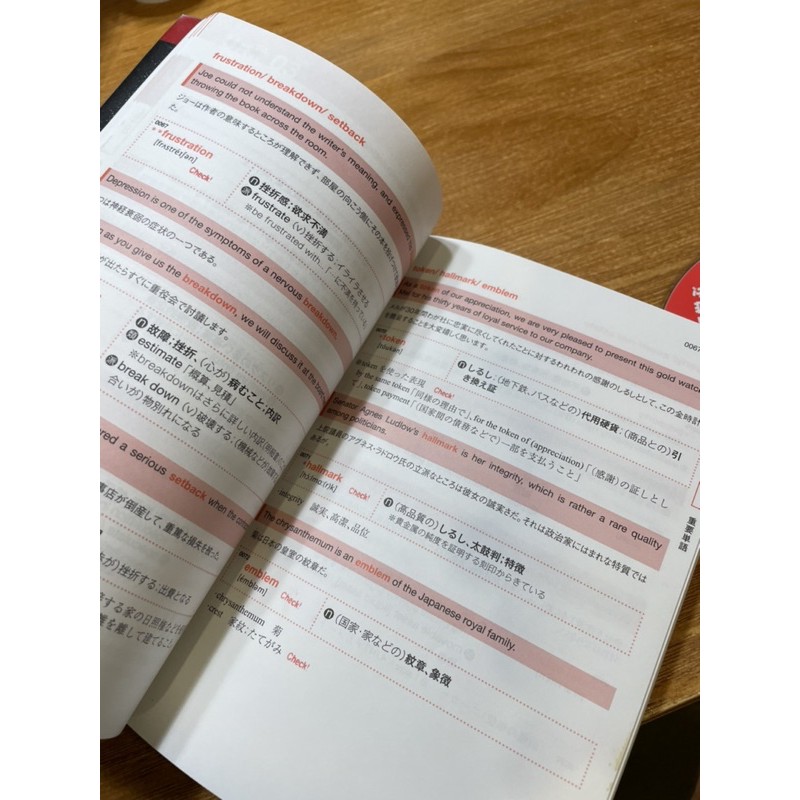 frustration/ breakdown/ setback
Joe could not understand the writer's meaning, and expressed
throwing the book across the room.
ジョーは作者の意味するところが理解できず、部屋の向こう側にその本を投げつけ
た。
0067
frustration
[frʌstréiʃən]
Check!
n 挫折感；欲求不満
frustrate （v）挫折する；イライラさせる
※be frustrated with.「…に不満を持っている
Depression is one of the symptoms of a nervous breakdown.
つは神経衰弱の症状の一つである。
as you give us the breakdown, we will discuss it at the
が出たらすぐに重役会で討議します。
n 故障；挫折、（心が）病むこと；内訳
estimate「概算、見積」
※breakdownはさらに詳しい内訳
break down （v）破壊する；（機械などが）故障
合いが）物別れになる
a serious setback when the
店が倒産して、重篤な損失を
が）挫折する；出費となる
する家の日照権など
を離して建てること
token/ hallmark/ emblem
token of our appreciation, we are very pleased to present this gold watch
for his thirty years of loyal service to our company.
が30年間わが社に忠実に尽くしてくれたことに対するわれわれの感謝のしるしとして、この金時計
を贈呈することを大変嬉しく思います。
token
[tóukən]
n しるし；（地下鉄、バスなどの）代用硬貨；（商品との）引
き換え証
tokenを使った表現
by the same token「同様の理由で」、for the token of (appreciation)「（感謝）の証しとし
て」、token payment「（国家間の債務などで）一部を支払うこと」
Senator Agnes Ludlow's hallmark is her integrity, which is rather a rare quality
among politicians.
上院議員のアグネス・ラドロウ氏の立派なところは彼女の誠実さだ。それは政治家にはまれな特質では
あるが。
hallmark
Check!
n （商品質の）しるし、太鼓判；特徴
※貴金属の純度を証明する刻印からきている
integrity 誠実、高潔、品位
The chrysanthemum is an emblem of the Japanese royal family.
菊は日本の皇室の紋章だ。
emblem
[émbləm]
Check!
n （国家・家などの）紋章、象徴
chrysanthemum 菊
crest 家紋；たてがみ
Check!
0067
重要単語